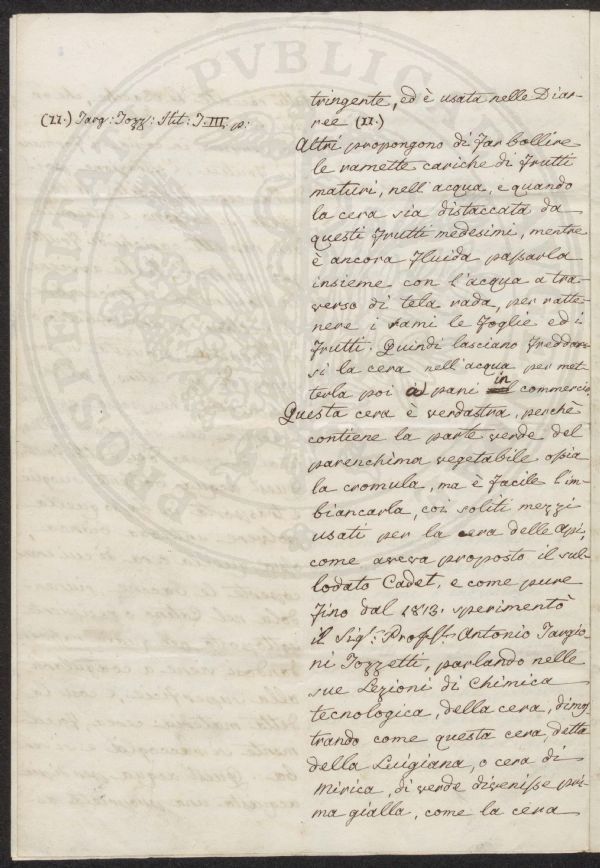 tringente, ed è usata nelle Diar-
ree (11.)
(11.) Targ: Tozz: Ist: T. III. p:
Altri propongono di far bollire
le ramette cariche di Frutti
maturi, nell'acqua, e quando
la cera sia distaccata da
questi Frutti medesimi, mentre
è ancora Fluida passarla
insieme con l'acqua a tra-
verso di tela rada, per ratte-
nere i rami le Foglie ed i
Frutti. Quindi lasciano Freddar
si la cera nell'acqua per met-
terla poi a pani in commercio
Questa cera è verdastra, perchè
contiene la parte verde del
parenchima vegetabile osia
la cromula, ma è Facile l'im-
biancarla, coi soliti mezzi
usati per la cera delle Api,
come aveva proposto il sul-
lodato Cadet, e come pure
Fino dal 1813. sperimentò
il Sig.r Profess.r Antonio Targio-
ni Tozzetti, parlando nelle
sue Lezioni di Chimica
tecnologica, della cera, dimos
trando come questa cera, detta
della Luigiana, o cera di
Mirica, di verde divenisse pri-
ma gialla, come la cera
PVBLICAE